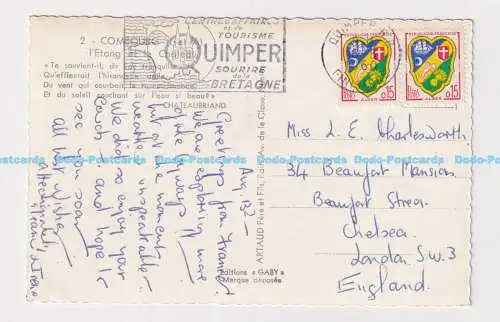 2 - COMBOURG
l'Etang et le Château
« Te souvient-il, du lac tranquille
Qu'effleurait l'hirondelle agile
Du vent qui courbait le roseau mobile
Et du soleil couchant sur l'eau si beau? »
CHATEAUBRIAND
CENTRE AFFAIRES
et de
TOURISME
QUIMPER
SOURIRE
de la
BRETAGNE
QUIMPER
REPUBLIQUE FRANÇAISE
POSTES
0,15
ALGER
REPUBLIQUE FRANÇAISE
POSTES
0,15
ALGER
Aug 13th -
Greetings from France!
We are exploring more
of the byways
but at the moment
weather unspeakable.
We did so enjoy your
lunch - and hope to
see you soon
all best wishes
affectionately
ARTAUD Père et Fils, Edit., Av. de la Close,
Editions « GABY »
Marque déposée
Miss L. E. Charlesworth
34 Beaufort Mansions
Beaufort Street
Chelsea.
London S.W.3
England.
Dodo-Postcards Dodo-Postcards Dodo-Postcards Dodo-Postcards